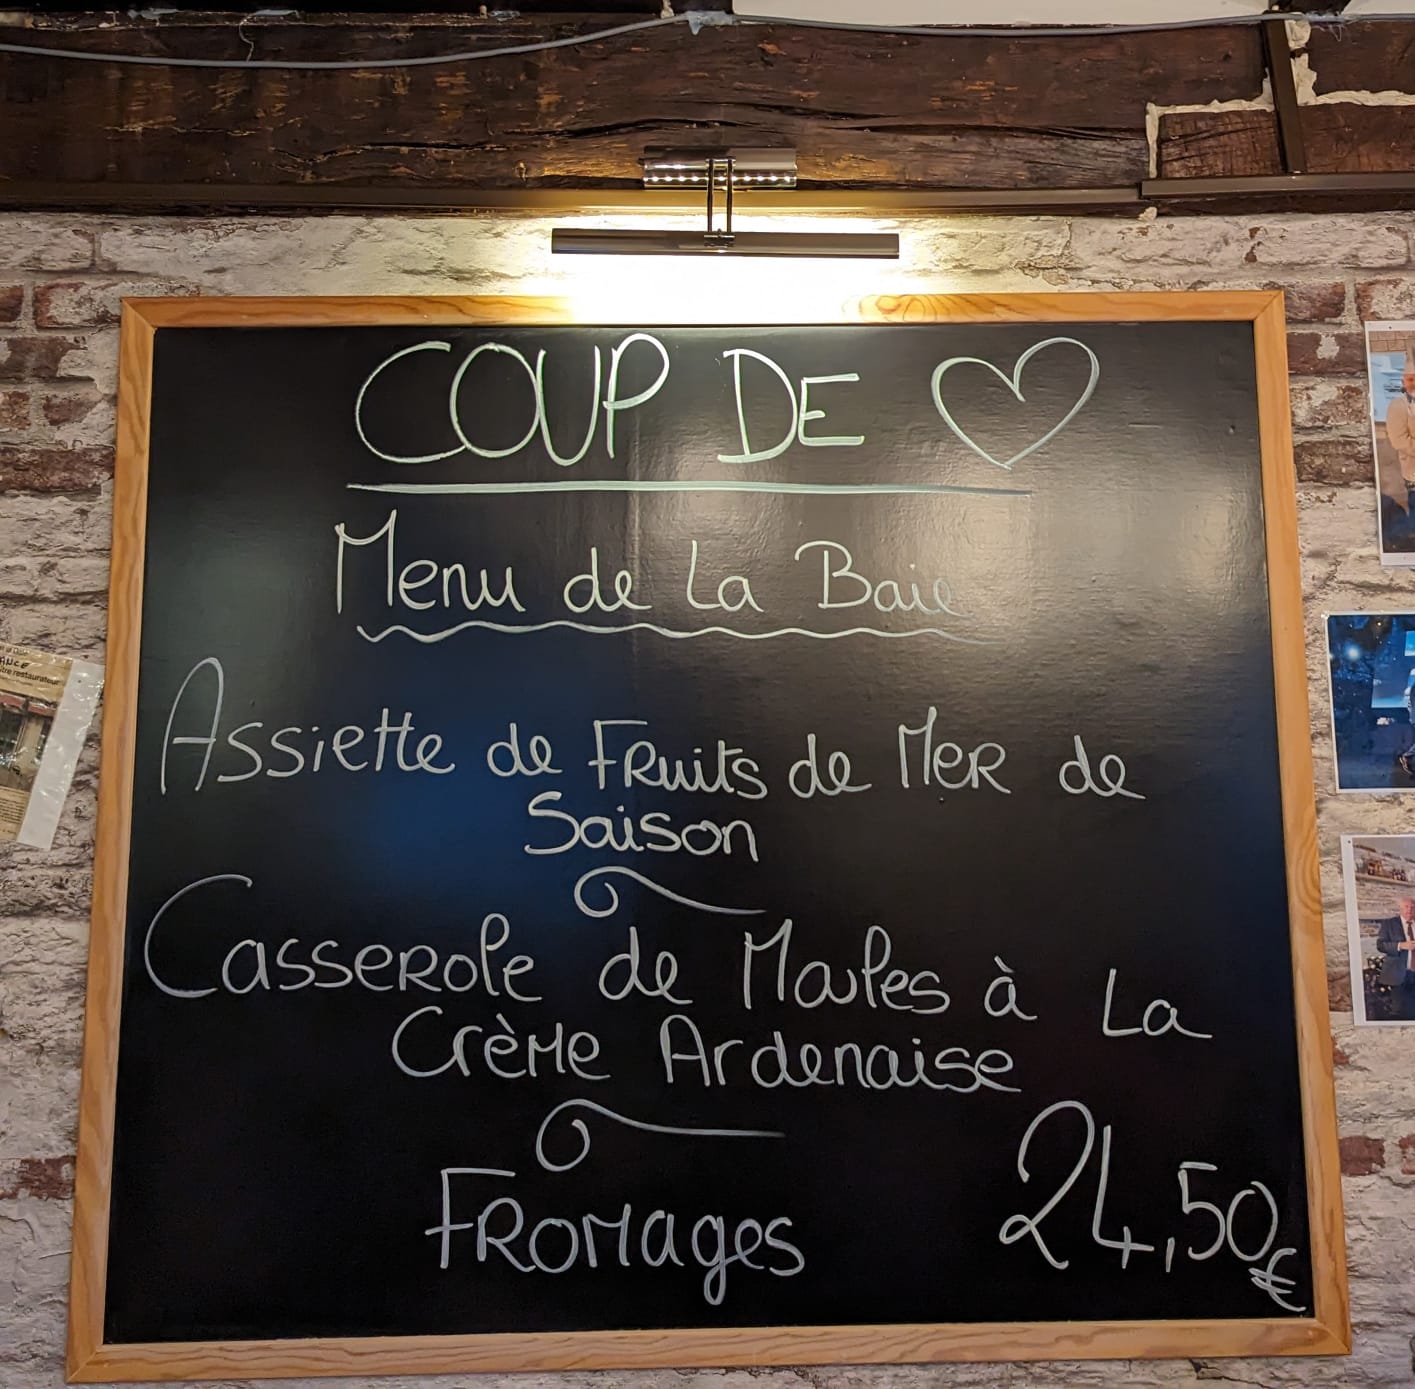 COUP DE ♡
Menu de La Baie
Assiette de Fruits de Mer de
Saison
Casserole de Moules à La
Crème Ardenaise
Fromages
24,50€
ANCE
tre restaurateur